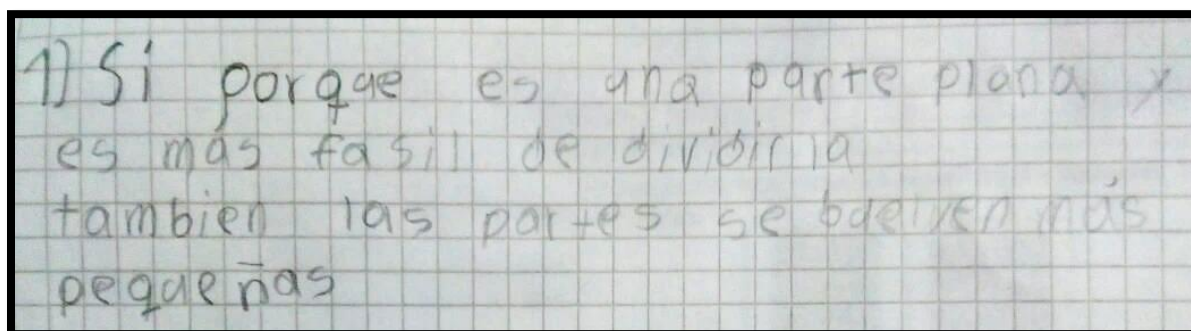 1) Si porque es una parte plana y
es más fasil de dividirla
tambien las partes se buelven más
pequeñas